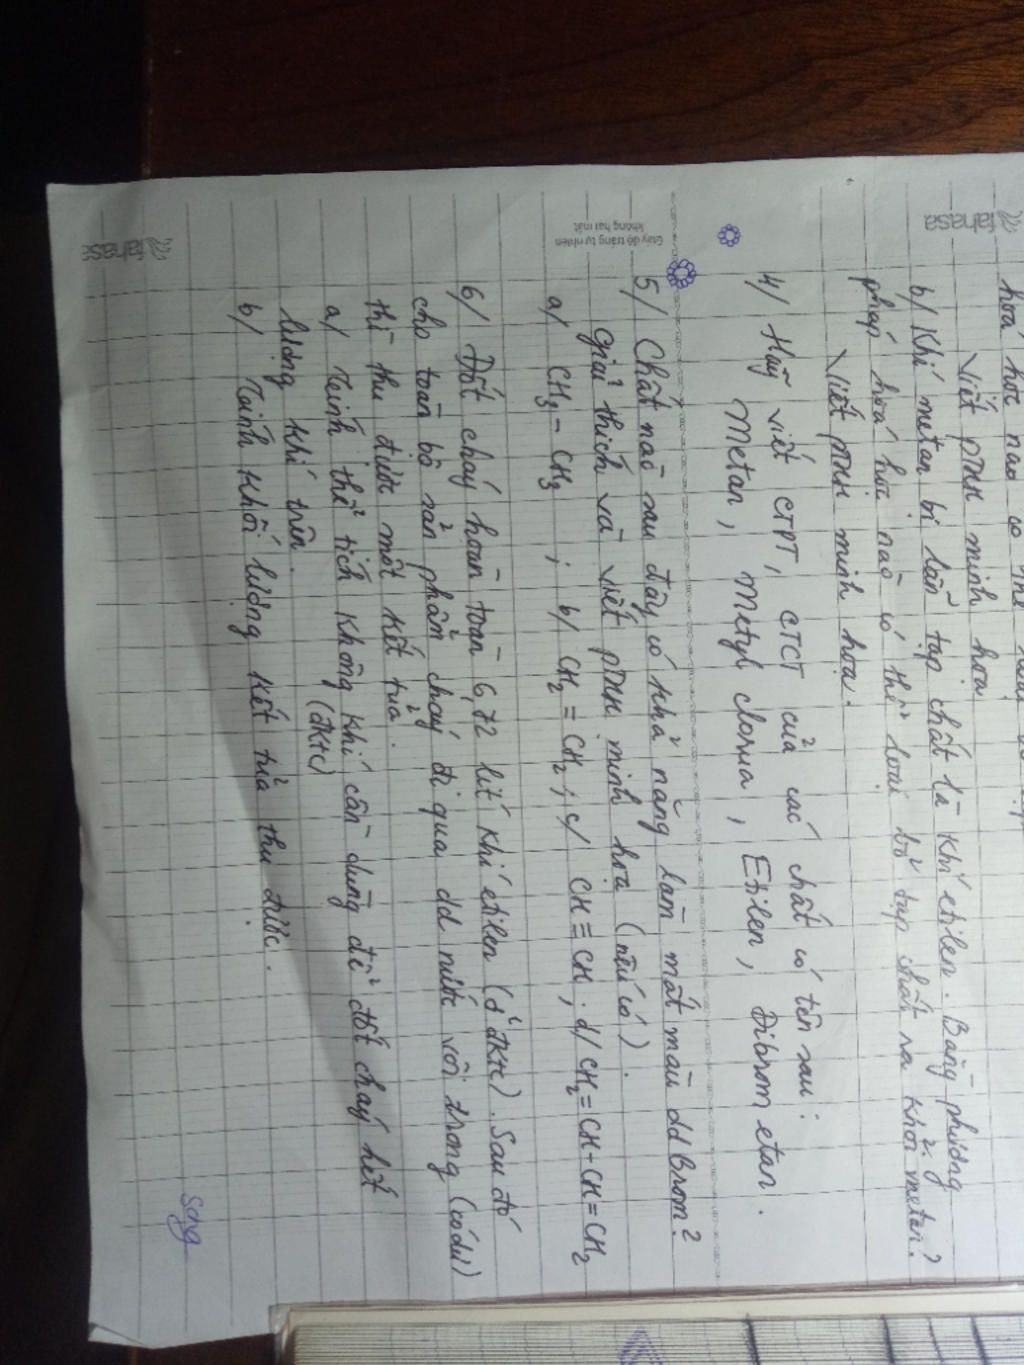 hoá học nào có thể
Viết PTHH minh hoạ
b/ Khí metan bị lẫn tạp chất là khí etilen. Bằng phương
pháp hoá học nào có thể loại bỏ tạp chất ra khỏi metan?
Viết PTHH minh hoạ.
4/ Hãy viết CTPT, CTCT của các chất có tên sau:
Metan, Metyl clorua, Etilen, Đibrom etan.
5/ Chất nào sau đây có khả năng làm mất màu dd Brom?
Giải thích và viết PTHH minh hoạ (nếu có).
a/ CH3 - CH3 ; b/ CH2 = CH2 ; c/ CH ≡ CH ; d/ CH2 = CH - CH = CH2
6/ Đốt cháy hoàn toàn 6,72 lít khí etilen (ở ĐKTC). Sau đó
cho toàn bộ sản phẩm cháy đi qua dd nước vôi trong (có dư)
thì thu được một kết tủa.
a/ Tính thể tích không khí cần dùng để đốt cháy hết
lượng khí trên. (ĐKTC)
b/ Tính khối lượng kết tủa thu được.
Song
fahasa
Giấy độ trắng tự nhiên
không hại mắt
fahasa